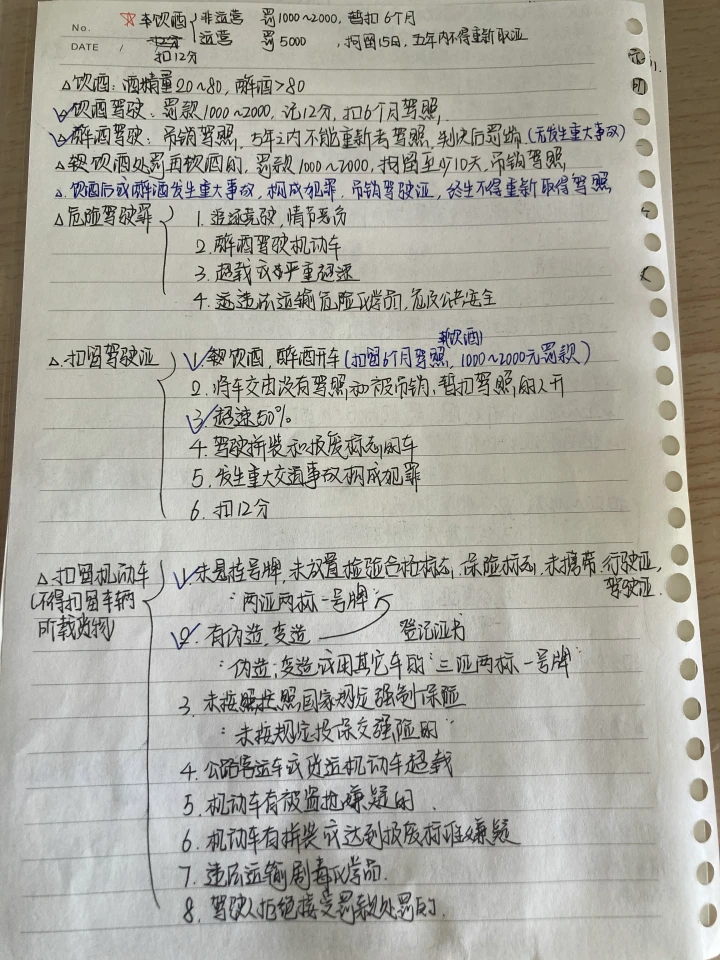 ☆ 车饮酒 { 非运营 罚1000~2000，暂扣6个月
No.
运营 罚5000，拘留15日，五年内不得重新取证
DATE /
扣12分
△饮酒：酒精量20~80，醉酒>80
△饮酒驾驶：罚款1000~2000，记12分，扣6个月驾照
△醉酒驾驶：吊销驾照，5年之内不能重新考驾照，判决后罚端（无发生重大事故）
△软饮酒处罚再饮酒的，罚款1000~2000，拘留至少10天，吊销驾照
△饮酒后或醉酒发生重大事故，构成犯罪，吊销驾驶证，终生不得重新取得驾照
△危险驾驶罪 { 1. 追逐竞驶，情节恶劣
2. 醉酒驾驶机动车
3. 超载或严重超速
4. 违法运输危险化学品，危及公共安全
软饮酒
△扣留驾驶证 1. 软饮酒，醉酒开车（扣留6个月驾照，1000~2000元罚款）
2. 将车交由没有驾照和被吊销、暂扣驾照的人开
3. 超速50%
4. 驾驶拼装和报废标志的车
5. 发生重大交通事故构成犯罪
6. 扣12分
△扣留机动车 1. 未悬挂号牌，未放置检验合格标志，保险标志，未携带行驶证，
（不得扣留车辆 "两证两标一号牌" 驾驶证
所载货物） 2. 有伪造、变造 登记证书
"伪造，变造或用其它车的"三证两标一号牌"
3. 未按照国家规定强制保险
"未按规定投保交强险的"
4. 公路客运车或货运机动车超载
5. 机动车有被盗抢嫌疑的
6. 机动车有拼装或达到报废标准嫌疑
7. 违法运输剧毒化学品
8. 驾驶人拒绝接受罚款处罚的